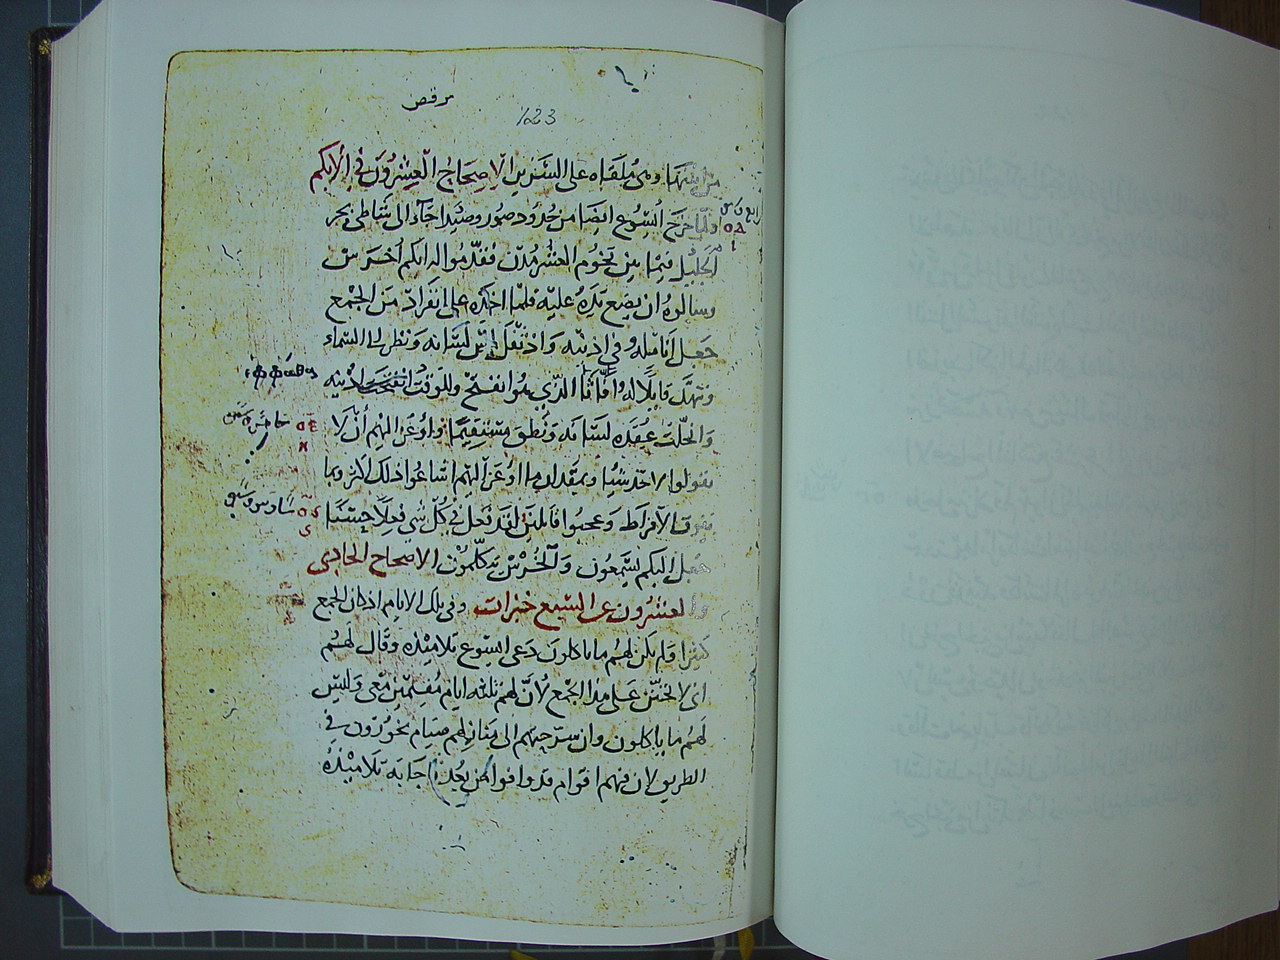 مرقص
123
من ابنتها وهي ملقاه على السَرير الاصحاح العشرون في الابكم
ولما خرَج ايسُوع ايضا من حُدُود صور وصَيْدا جآء الى شاطى بحر
الجَليْل فيما بين تخوم العشرمُدن فقدّموا اليه ابكم اخرَس
وسالوهُ ان يضع يَدَهُ عليْه فلما اخذه على انفَرادٍ مَن الجَمْع
جَعَل انامله في اذنيْه وَاذ تفل لَسَانه وَنظر الى السَماء
وتنهّد قايلًا له افّاثا الذي هُوا نفتح وللوَقت انفتحَت اذنيْه
ⲉⲫⲫⲁⲑⲁ
وَانحلّت عُقدة لسَانه وَنُطق مسْتقيْمًا وَاوْعز اليْهم أنْ لا
يقولوا لاحَد شيْا وبمقدار ما اوْعَز اليْهم اشاعُوا ذلك اكثر وبما
يفوق الافراط وَعجبوا قايليْنَ لقَد فعَل في كُلّ شي فعلًا حسَنًا
سَادس
جعَل البكم يسَمعون وَالخُرسْ يتكلّمون الاصحاح الحادى
والعشرون عن السَبع خبزات وفى تلك الايام اذ كان الجمع
كثيرا ولم يَكن لهم ما ياكلونَ دَعى ايسوع تلاميْذه وقال لهُم
انى لاتحنّن عَلى هذا الجَمْع لأنّ لهم ثلثه ايام مُقيميْن مَعى وَليْسَ
لهُم ما ياكلون وان سرّحتهم الى مَنازلهم صيام يخورُون في
الطريق لان منهم اقوام قد وافوا من بُعْد اجَابَه تلاميْذهُ